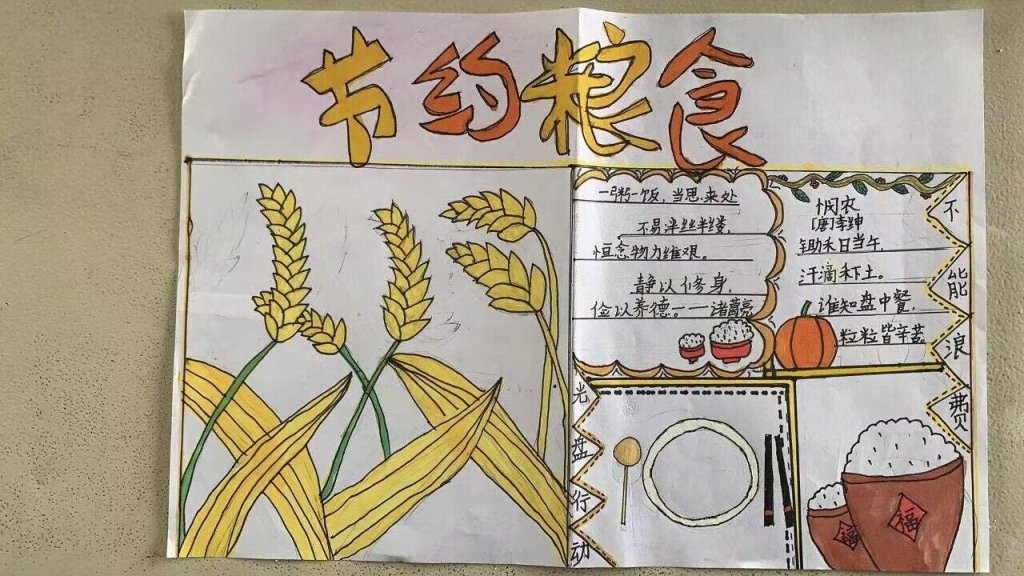 节约粮食
一粥一饭，当思来处
不易半丝半缕，
恒念物力维艰。
静以修身，
俭以养德。—诸葛亮
悯农
[唐]李绅
锄禾日当午，
汗滴禾下土。
谁知盘中餐，
粒粒皆辛苦
不能浪费
光盘行动
福
福